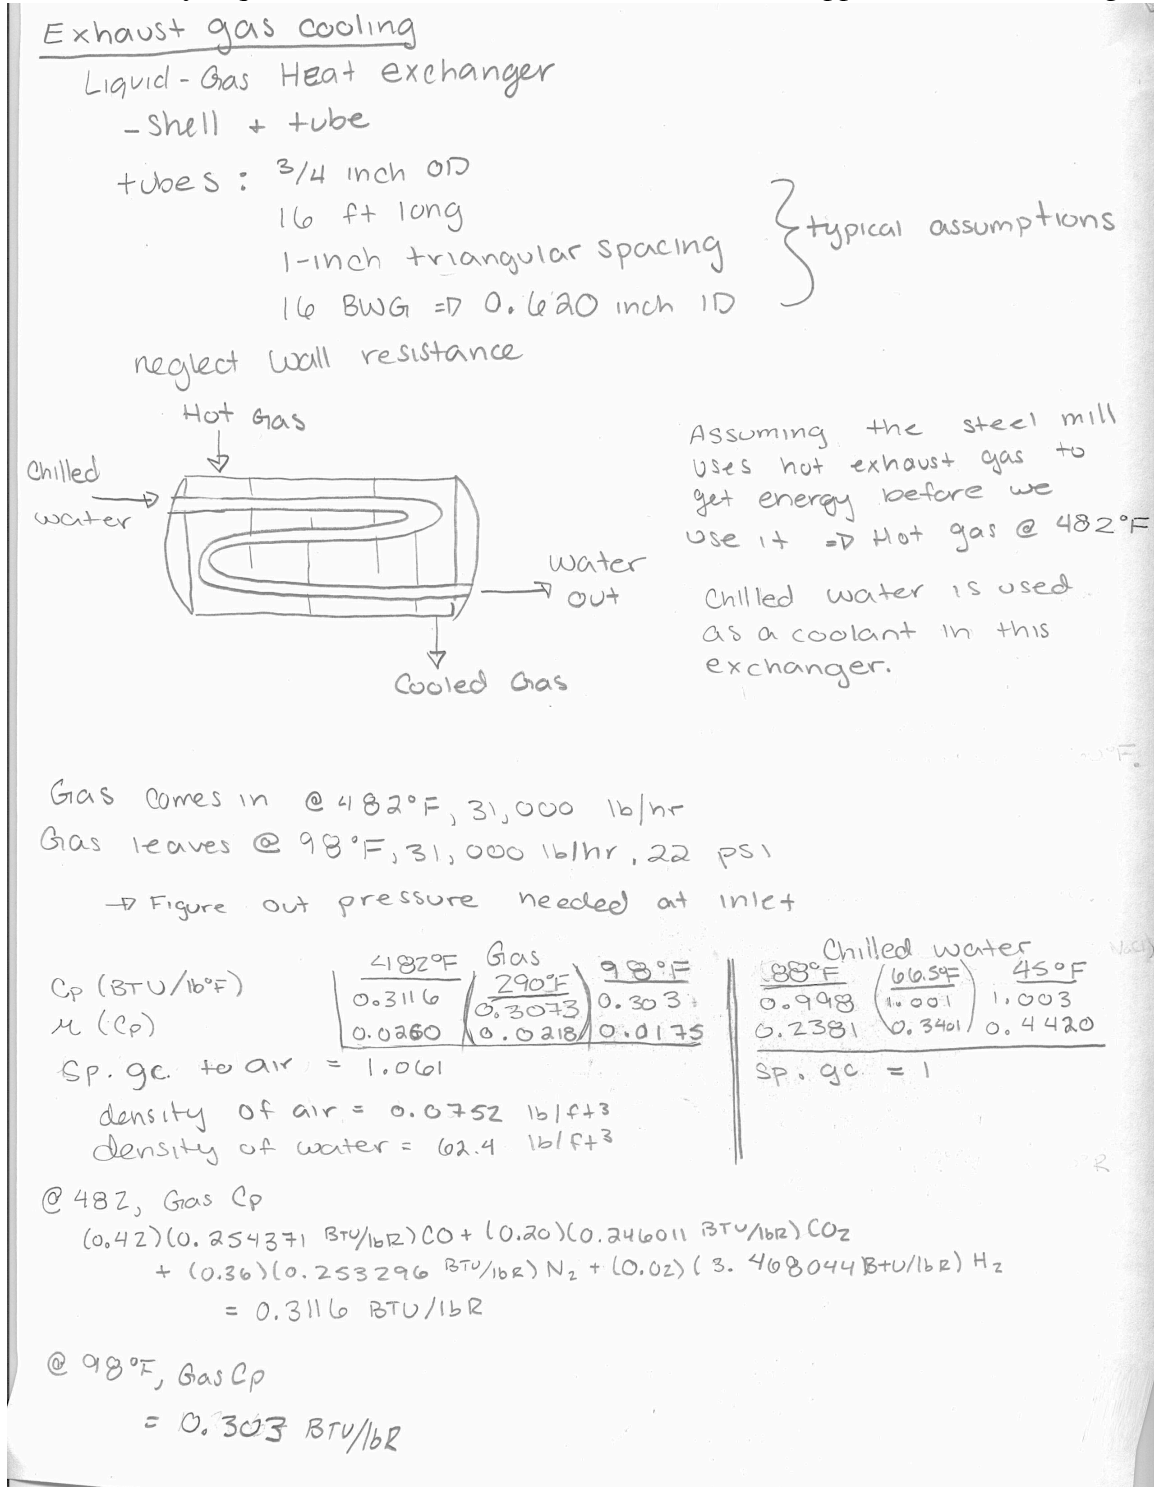 Exhaust gas cooling
Liquid-Gas Heat exchanger
- Shell + tube
tubes: 3/4 inch OD
16 ft long
1-inch triangular spacing
16 BWG => 0.620 inch ID
} typical assumptions
neglect wall resistance
Hot Gas
Chilled
water
Water
out
Cooled Gas
Assuming the steel mill
uses hot exhaust gas to
get energy before we
use it => Hot gas @ 482°F
Chilled water is used
as a coolant in this
exchanger.
Gas comes in @ 482°F, 31,000 lb/hr
Gas leaves @ 98°F, 31,000 lb/hr, 22 psi
→ Figure out pressure needed at inlet
Gas
Chilled water
482°F (290°F) 98°F
88°F (66.5°F) 45°F
Cp (BTU/lb°F) 0.3116 (0.3073) 0.303
0.998 (1.001) 1.003
μ (cp) 0.0260 (0.0218) 0.0175
0.2381 (0.3401) 0.4420
Sp. gr. to air = 1.061
Sp. gr. = 1
density of air = 0.0752 lb/ft3
density of water = 62.4 lb/ft3
@ 482, Gas Cp
(0.42)(0.254371 BTU/lbR) CO + (0.20)(0.246011 BTU/lbR) CO2
+ (0.36)(0.253296 BTU/lbR) N2 + (0.02)(3.468044 BTU/lbR) H2
= 0.3116 BTU/lbR
@ 98°F, Gas Cp
= 0.303 BTU/lbR